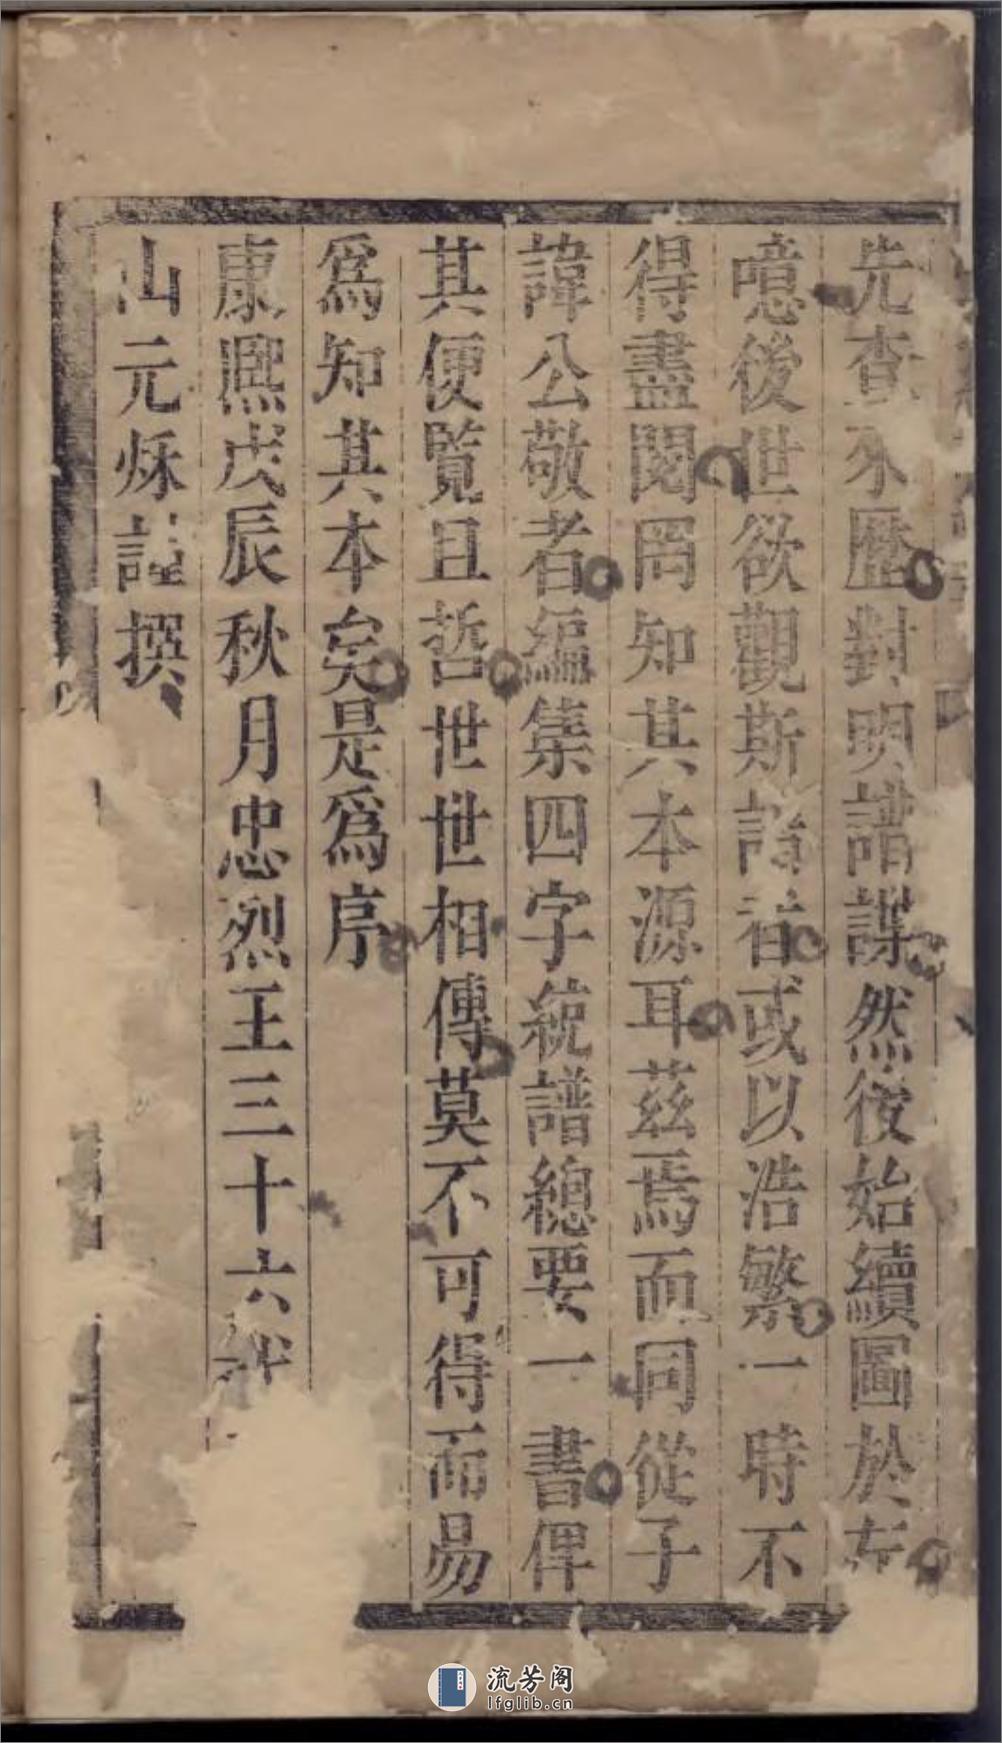 先查來歷對明譜諜然後始續圖於左
噫後世欲觀斯譜者或以浩繁一時不
得盡閱罔知其本源耳茲焉而同從子
諱公敬者編集四字統譜總要一書俾
其便覧且哲世世相傳莫不可得而易
爲知其本矣是爲序
康熙戊辰秋月忠烈王三十六代
山元秌謹撰
流芳阁
lfglib.cn